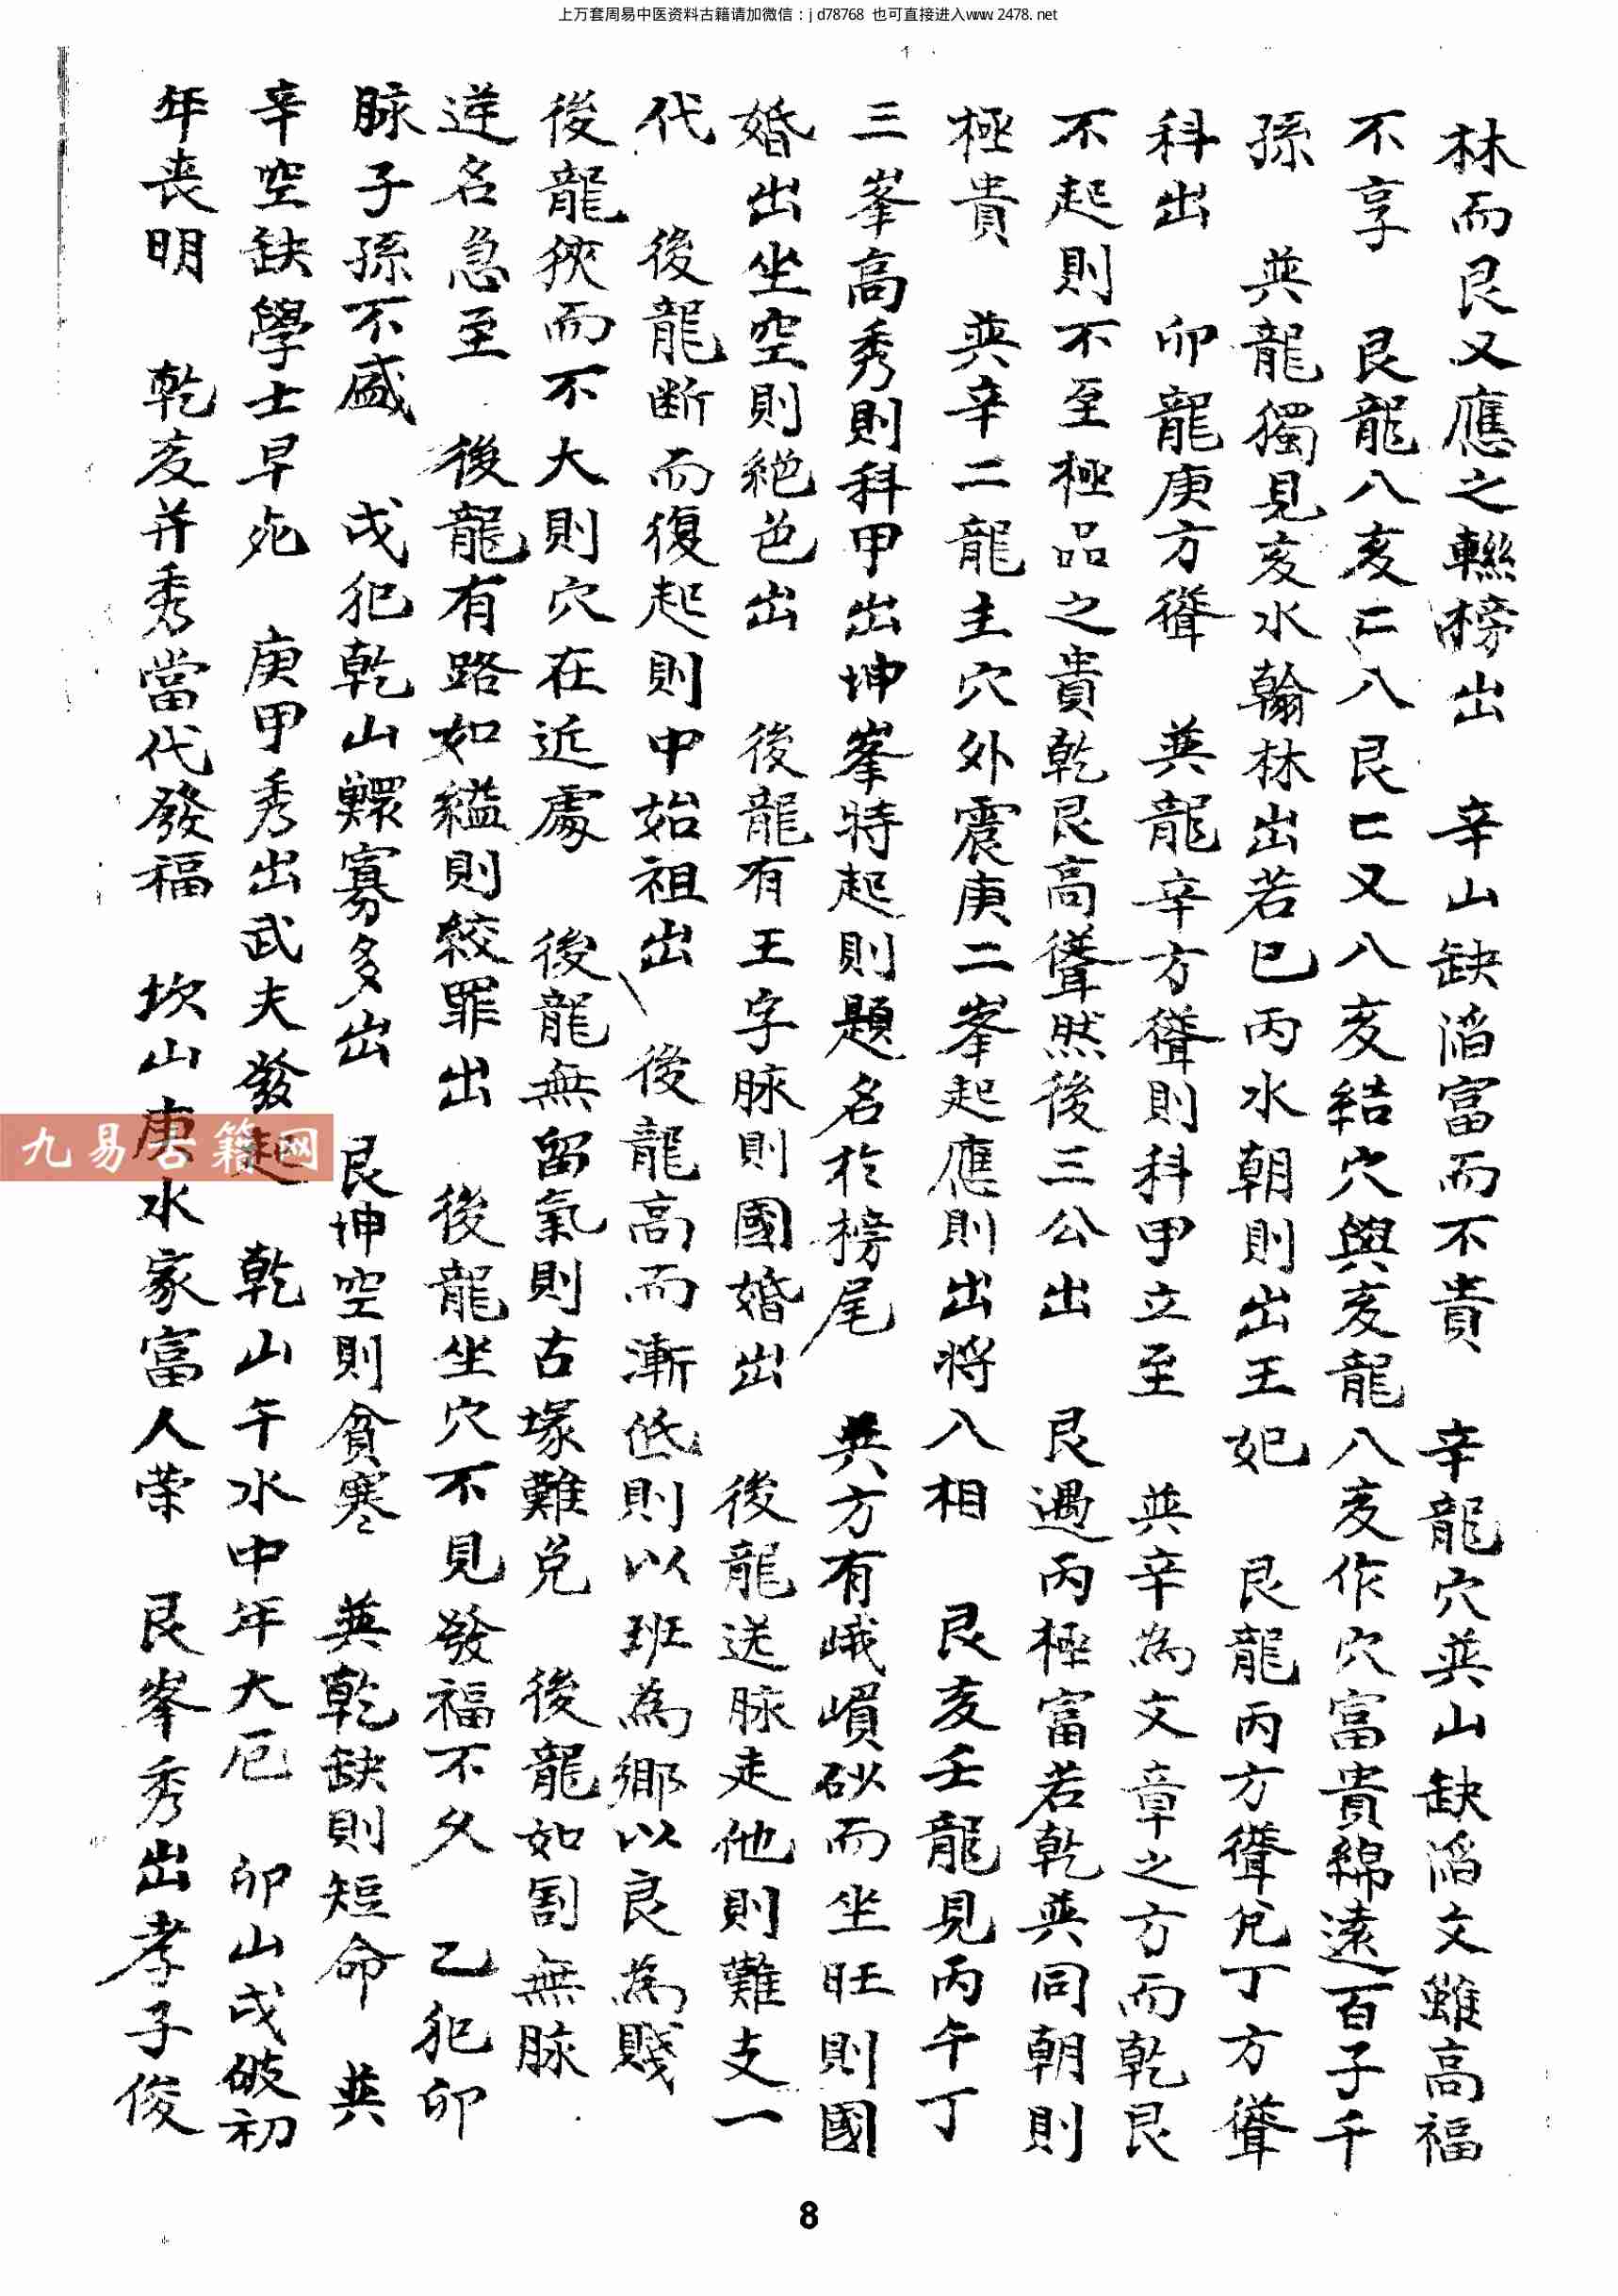 上万套周易中医资料古籍请加微信：jd78768 也可直接进入www.2478.net
林而艮又應之聮榜出 辛山缺滔富而不貴 辛龍穴巽山缺滔文雖高福
不享 艮龍八亥亡八艮亡又八亥結穴與亥龍八亥作穴富貴綿遠百子千
孫 巽龍獨見亥水翰林出若巳丙水朝則出王妃 艮龍丙方聳兌丁方聳
科出 卯龍庚方聳 巽龍辛方聳則科甲立至 巽辛為文章之方而乾艮
不起則不至極品之貴乾艮高聳然後三公出 艮遇丙極富若乾巽同朝則
極貴 巽辛二龍主穴外震庚二峯起應則出將八相 艮亥壬龍見丙午丁
三峯高秀則科甲出坤峯特起則題名於榜尾 巽方有峨嵋砂而坐旺則國
婚出坐空則絕色出 後龍有王字脉則國婚出 後龍送脉走他則難支一
代 後龍断而復起則中始祖出 後龍高而漸低則以班為鄉以良為賤
後龍狹而不大則穴在近處 後龍無留氣則古塚難免 後龍如割無脉
逆名急至 後龍有路如縊則絞罪出 後龍坐穴不見發福不久 乙犯卯
脉子孫不盛 戌犯乾山鰥寡多出 艮坤空則貧寒 巽乾缺則短命 巽
辛空缺學士早死 庚甲秀出武夫發起 乾山午水中年大厄 卯山戌破初
年丧明 乾亥并秀當代發福 坎山庚水家富人荣 艮峯秀出孝子俊
九易古籍网
8